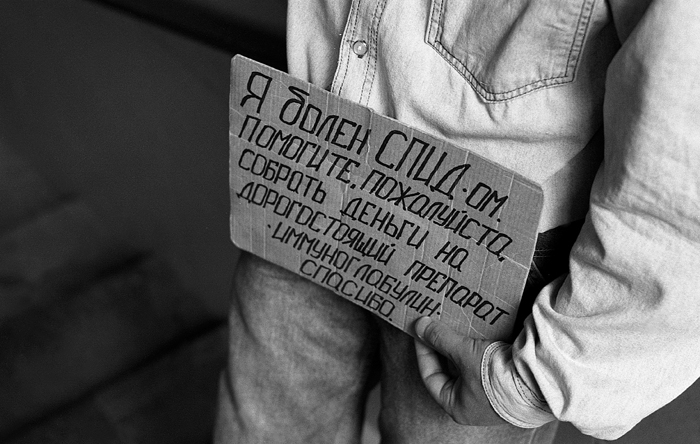 Я болен СПИД·ом.
ПОМОГИТЕ, ПОЖАЛУЙСТА,
СОБРАТЬ ДЕНЬГИ НА
ДОРОГОСТОЯЩИЙ ПРЕПАРАТ
·ИММУНОГЛОБУЛИН·
СПАСИБО.